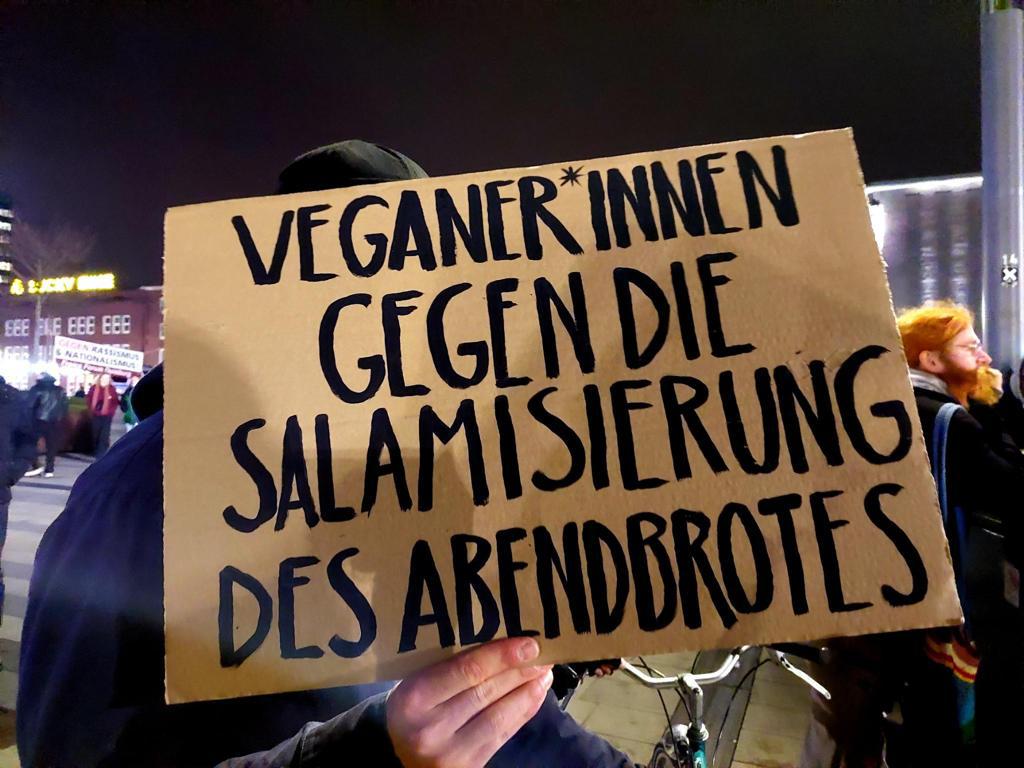 VEGANER*INNEN
GEGEN DIE
SALAMISIERUNG
DES ABENDBROTES
GEGEN RASSISMUS
& NATIONALISMUS
14